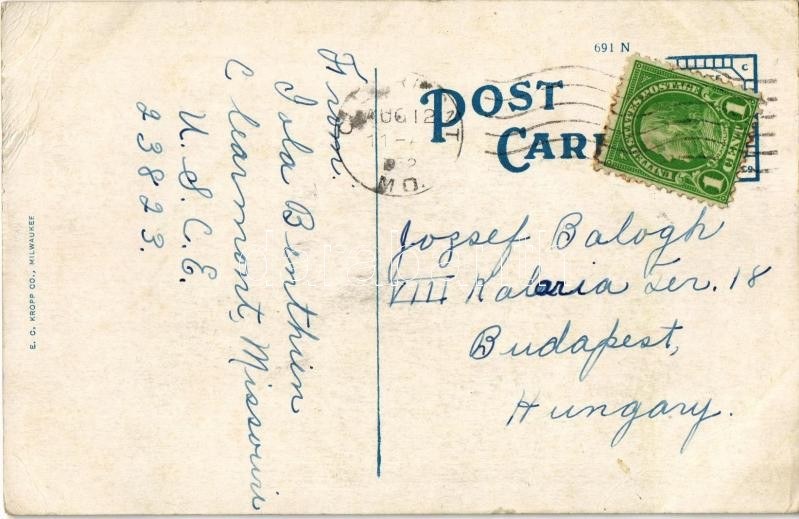 From.
Iola Benthien
Clearmont, Missouri
U.S.C.E.
23823.
E. C. KROPP CO., MILWAUKEE
691 N
POST
CAR
AUG 12
MO.
UNITED STATES POSTAGE
1 CENT 1
Jozsef Balogh
VIII Kalaria Ter. 18
Budapest,
Hungary.